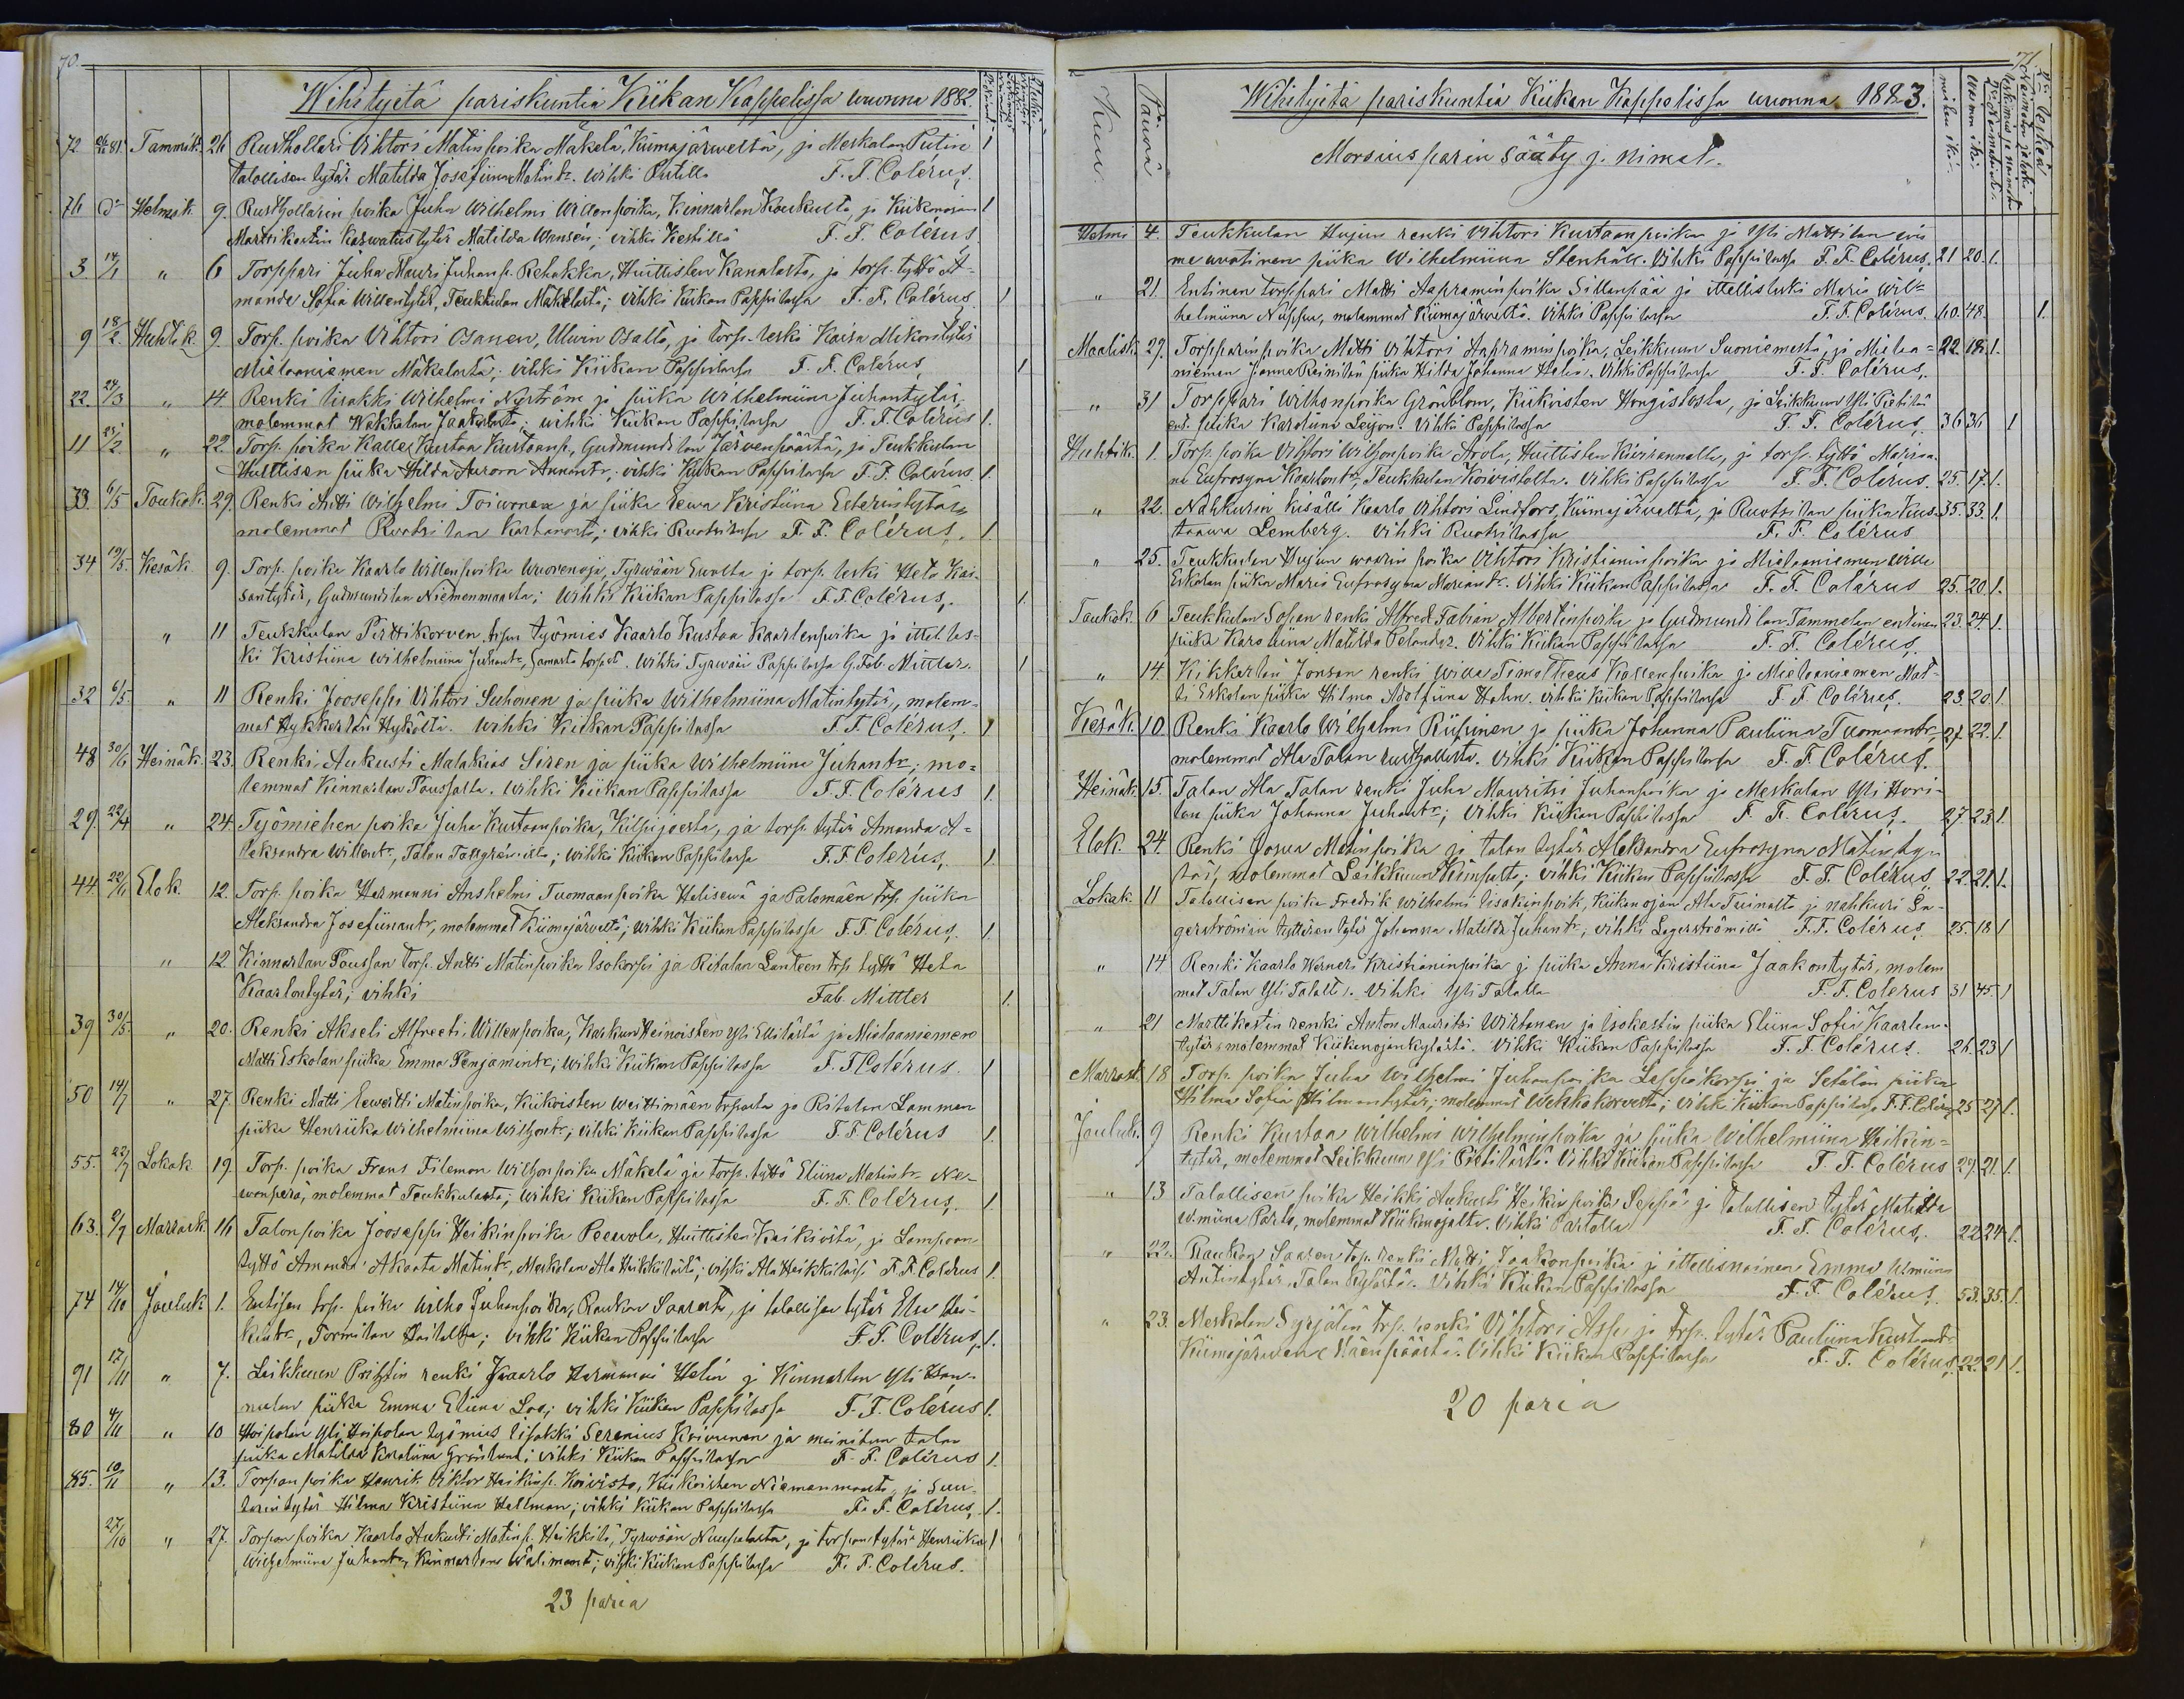 70.
Wihityitä pariskuntia Kiikan Kappelissa wuonna 1882.
72 81. Tammik. 26 Rusthollari Vihtori Matinpoika Mäkelä, Kiimajärweltä, ja Meskalan Putin 1
talollisen tytär Matilda Josefiina Matintr. Vihki Putilla F. F. Colérus.
76 Do Helmik. 9. Rusthollarin poika Juha Wilhelmi Willenpoika, Kinnarlan Koukulta, ja Kiikanojan 1
Marttikestin kaswatustytär Matilda Wansén; vihki Kestillä F. F. Colérus
3 14/1 " 6 Torppari Juha Mauri Juhanp. Rekakka, Huittisten Kanalasta, ja torp. tyttö A-
manda Sofia Willentytär, Teukkulan Mäkelästä; vihki Kiikan Pappilassa F. F. Colérus 1
9 18/2. Huhtik. 9. Torp. poika Vihtori Osanen, Ulwin Osalta, ja torp. leski Kaisa Mikontytär
Mielaaniemen Mäkelästä; vihki Kiikan Pappilassa F. F. Colérus, 1
22. 24/3 " 14 Renki Iisakki Wilhelmi Nyström ja piika Wilhelmiina Juhantytär,
molemmat Wakkalan Jaakolasta; vihki Kiikan Pappilassa F. F. Colérus 1.
11 25/2 " 22 Torp. poika Kalle Kustaa Kustaanp., Gudmundilan Järvenpäästä, ja Teukkulan
Huittisen piika Hilda Aurora Annantr.; vihki Kiikan Pappilassa F. F. Colérus. 1.
33. 6/5 Toukok. 29. Renki Antti Wilhelmi Toiwonen ja piika Eewa Kristiina Esterintytär
molemmat Ruotsilan kartanosta; vihki Ruotsilassa F. F. Colérus. 1
34 19/5. Kesäk. 9. Torp. poika Kaarlo Willenpoika Wuorenoja, Tyrwään Ewolta ja torp. leski Heta Kai-
santytär, Gudmundilan Niemenmaasta; Wihki Kiikan Pappilassa F. F. Colérus. 1.
" 11 Teukkulan Pirttikorven torp. työmies Kaarlo Kustaa Kaarlenpoika ja ittel. les-
ki Kristiina Wilhelmiina Juhantr., samasta torpast. Wihki Tyrwään Pappilassa G. Fab. Mittler 1
32 6/5. " 11 Renki Jooseppi Vihtori Suhonen ja piika Wilhelmiina Matintytär, molem-
mat Hykkerlän Hykölta. Wihki Kiikan Pappilassa F. F. Colérus. 1
48 30/6 Heinäk. 23. Renki Aukusti Malakias Siren ja piika Wilhelmiina Juhantr.; mo-
lemmat Kinnarlan Poussalta. Wihki Kiikan Pappilassa F. F. Colérus 1.
29. 22/4 " 24 Työmiehen poika Juha Kustaanpoika, Kilpijoesta, ja torp. tytär Amanda A-
leksandra Willentr., Talan ; Wihki Kiikan Pappilassa F. F. Colérus, 1
44. 22/6 Elok. 12. Torp. poika Hermanni Anshelmi Tuomaanpoika Helisewä ja Palomäen torp. piika
Aleksandra Josefiinantr., molemmat Kiimajärveltä; Wihki Kiikan Pappilassa F. F. Colérus. 1.
" 12 Kinnarlan Poussan torp. Antti Matinpoika Isokorpi ja Ritalan Lanteen torp. tyttö Heta
Kaarlontytär; vihki Fab. Mittler 1.
39 30/5. " 20. Renki Akseli Alfreeti Willenpoika, Karkun Heinoisten Yli Ellilästä ja Mielaaniemen
Matti Eskolan piika Emma Penjamintr.; Wihki Kiikan Pappilassa F. F. Colérus. 1
50 14/7 " 27. Renki Matti Eewertti Matinpoika, Kiikoisten Weittimäen torpasta ja Ritalan Lamman
piika Henriika Wilhelmiina Willjontr.; vihki Kiikan Pappilassa F. F. Colérus 1.
55. 22/7 Lokak. 19. Torp. poika Frans Filemon Willjonpoika Mäkelä ja torp. tyttö Eliina Matintr. Ne-
wonperä, molemmat Teukkulasta; Wihki Kiikan Pappilassa F. F. Colérus. 1.
63. 2/9 Marrask. 16 Talonpoika Jooseppi Heikinpoika Peewola, Huittisten Raskiolta, ja Sampoon
tyttö Amanda Akaata Matintr., Meskalan Ala Heikkilästä; vihki Ala Heikkilässä F. F. Colérus 1.
74 14/10 Jouluk. 1. Entisen torp. poika Wilho Juhanpoika, Raukon Saaresta, ja talollisen tytär Elw Hei-
kintr., Tormilan Haitalta; vihki Kiikan Pappilassa F. F. Colérus. 1.
91 17/11 " 7. Leikkuun Pristin renki Kaarlo Hermanni Helin ja Kinnarlan Yli Han-
nulan piika Emma Eliina Loo; vihki Kiikan Pappilassa F. F. Colérus 1.
80 4/11 " 10 Hoipolan Yli Hoipolan työmies Iisakki Serenius Koivunen ja mainitun talon
piika Matilda Karoliina Grönlund; vihki Kiikan Pappilassa F. F. Colérus 1.
85. 10/11 " 13. Torpan poika Henrik Viktor Heikinp. Koivisto, Kiikoisten Niemenmaasta, ja Suu-
tarin tytär Hilma Kristiina Hellman; vihki Kiikan Pappilassa F. F. Colérus, 1.
27/10 " 27. Torpan poika Kaarlo Aukusti Matinp. Heikkilä, Tyrwään Nuupalasta, ja torpan tytär Henriika 1
Wilhelmiina Juhantr., Kinnarlan Wälimaast; vihki Kiikan Pappilassa F. F. Colérus.
23 paria
71.
Wihityitä pariskuntia Kiikan Kappelissa wuonna 1883.
Kuu. Päiwänä
Miehen ikä. Waimon ikä.
Morsiusparin sääty ja nimet.
Helmi 4. Teukkulan Hujun renki Vihtori Kustaanpoika ja Yli Mattilan wii-
me wuotinen piika Wilhelmiina Stenhäll. Vihki Pappilassa F. F. Colérus, 21 20. 1.
" 21. Entinen torppari Matti Aapraminpoika Sillanpää ja ittellisleski Maria Wil-
helmiina Nuppu, molemmat Kiimajärveltä. Vihki Pappilassa F. F. Colérus. 60. 48. 1.
Maalisk. 27. Torpparinpoika Matti Vihtori Aapraminpoika, Leikkuun Suoniemestä, ja Mielaa- 22. 18. 1.
nieman Janne Reinilän piika Hilda Johanna Helin. Vihki Pappilassa F. F. Colérus,
" 31 Torppari Wilhonpoika Grönblom, Kiikoisten Hongistosta, ja Leikkuun Yli Pietilän
ent. piika Karoliina Leijon. Vihki Pappilassa F. F. Colérus, 36 36 1
Huhtik. 1. Torp. poika Vihtori Willjonpoika Arola, Huittisten Kiviranalta, ja torp. tyttö Mariaa-
na Eufrosyna Kaarlontr, Teukkulan Koivistolta. Vihki Pappilassa F. F. Colérus. 25. 17. 1.
" 22. Nahkurin kisälli Kaarlo Vihtori Lindfors, Kiimajärveltä, ja Ruotsilan piika Kus- 35. 33. 1.
taawa Lemberg. Vihki Ruotsilassa F. F. Colérus
" 25. Teukkulan Hujun waarin poika Vihtori Kristianinpoika ja Mielaaniemen Wille
Eskolan piika Maria Eufrosyna Mariantr. Vihki Kiikan Pappilassa F. F. Colérus 25. 20. 1.
Toukok. 6 Teukkulan Sofan renki Alfred Fabian Albertinpoika ja Gudmundilan Tammelan entinen 23. 24. 1.
piika Karoliina Matilda Pelander. Vihki Kiikan Pappilassa F. F. Colérus,
" 14. Kikkerlän Jonsan renki Wille Timotheus Kallenpoika ja Mielaaniemen Mat-
ti Eskolan piika Hilma Adolfiina Hahn. Vihki Kiikan Pappilassa F. F. Colérus. 23. 20. 1.
Kesäk. 10. Renki Kaarlo Wilhelmi Riipinen ja piika Johanna Pauliina Tuomaantr. 27. 22. 1.
molemmat Ala Talan rusthollista. Vihki Kiikan Pappilassa F. F. Colérus.
Heinäk. 15. Talan Ala Talan renki Juha Mauritsi Juhanpoika ja Meskalan Yli Hori-
lan piika Johanna Juhantr.; Vihki Kiikan Pappilassa F. F. Colérus. 27. 23. 1.
Elok. 24. Renki Josua Matinpoika ja talon tytär Aleksandra Eufrosyna Matinty-
tär, molemmat Leikkuun Kimpalta; vihki Kiikan Pappilassa F. F. Colérus 22. 21. 1.
Lokak. 11 Talollisen poika Fredrik Wilhelmi Iisakinpoik, Kiikanojan Ala Tuimalta ja nahkuri La-
gerströmin tyttären tytär Johanna Matilda Juhantr.; vihki Lagerströmillä F. F. Colérus. 25. 18 1
" 14 Renki Kaarlo Werneri Kristianinpoika ja piika Anna Kristiina Jaakontytär, molem
mat Talan Yli Talalta. Vihki Yli Talalla F. F. Colérus 31 45. 1
" 21 Marttikestin renki Anton Mauritsi Wirtanen ja Isokestin piika Eliina Sofia Kaarlen-
tytär, molemmat Kiikanojankylästä. Vihki Kiikan Pappilassa F. F. Colérus. 26. 23 1
Marrask. 18 Torp. poika Juha Wilhelmi Juhanpoika Leppäkorpi ja Setälän piika
Hilma Sofia Hilmantytär; molemmat Wehkakorvesta; vihki Kiikan Pappilassa F. F. Colérus 25 27 1.
Jouluk. 9 Renki Kustaa Wilhelmi Wilhelminpoika ja piika Wilhelmiina Heikin-
tytär, molemmat Leikkuun Yli Pietilästä. Vihki Kiikan Pappilassa F. F. Colérus 29. 21. 1.
" 13 Talollisen poika Heikki Aukusti Heikinpoika Seppä ja Talollisen tytär Matilda
W.miina Parto, molemmat Kiikanojalta. Vihki Partolla F. F. Colérus, 22 24 1.
" 22. Raukon Saaren torp. renki Matti Jaakonpoika ja ittellisnainen Emma Ulmiina
Antintytär, Talan kylästä. Vihki Kiikan Pappilassa F. F. Colérus. 53. 35. 1.
" 23. Meskalan Syrjälän torp. renki Vihtori Asp, ja torp. tytär Pauliina Kustaantr
Kiimajärwen Mäenpäästä. Vihki Kiikan Pappilassa F. F. Colérus, 22. 21 1.
20 paria